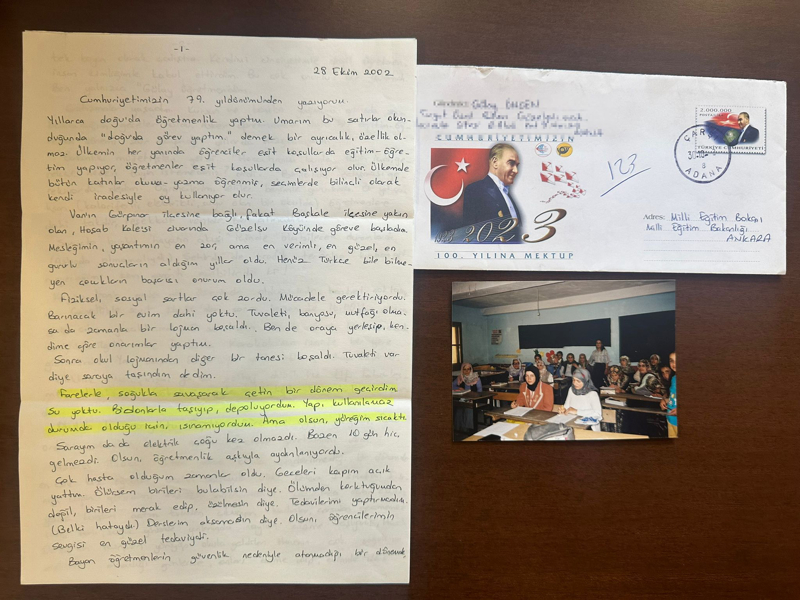 -1-
28 Ekim 2002
Cumhuriyetimizin 79. yıldönümünden yazıyorum.
Yıllarca doğu'da öğretmenlik yaptım. Umarım bu satırlar okun-
duğunda "doğu'da görev yaptım" demek bir ayrıcalık, özellik ol-
maz. Ülkemin her yanında öğrenciler eşit koşullarda eğitim-öğre-
tim yapıyor, öğretmenler eşit koşullarda çalışıyor olur. Ülkemde
bütün kadınlar okuma-yazma öğrenmiş, seçimlerde bilinçli olarak
kendi iradesiyle oy kullanıyor olur.
Van'ın Gürpınar ilçesine bağlı, fakat Başkale ilçesine yakın
olan, Hoşab Kalesi civarında Güzelsu Köyü'nde göreve başladım.
Mesleğimin, yaşantımın en zor, ama en verimli, en güzel, en
gururlu sonuçların aldığım yıllar oldu. Henüz Türkçe bile bilme-
yen çocukların başarısı onurum oldu.
Fiziksel, sosyal şartlar çok zordu. Mücadele gerektiriyordu.
Barınacak bir evim dahi yoktu. Tuvaleti, banyosu, mutfağı olma-
sa da zamanla bir lojman boşaldı. Ben de oraya yerleşip, ken-
dime göre onarımlar yaptım.
Sonra okul lojmanından diğer bir tanesi boşaldı. Tuvaleti var
diye saraya taşındım dedim.
Farelerle, soğukla savaşarak çetin bir dönem geçirdim
Su yoktu. Bidonlarla taşıyıp, depoluyordum. Yapı kullanılamaz
durumda olduğu için, ısınamıyordum. Ama olsun, yüreğim sıcaktı.
Sarayım da da elektrik çoğu kez olmazdı. Bazen 10 gün hiç
gelmezdi. Olsun, öğretmenlik aşkıyla aydınlanıyordu.
Çok hasta olduğum zamanlar oldu. Geceleri kapım açık
yattım. Ölürsem birileri bulabilsin diye. Ölümden korktuğumdan
değil, birileri merak edip, üzülmesin diye. Tedavilerimi yaptırmadım.
(Belki hataydı) Derslerim aksamasın diye. Olsun, öğrencilerimin
sevgisi en güzel tedaviydi.
Bayan öğretmenlerin güvenlik nedeniyle atanmadığı bir dönemde
CUMHURİYETİMİZİN
2023
100. YILINA MEKTUP
123
2.000.000
TÜRKİYE CUMHURİYETİ
ADANA
Adres: Milli Eğitim Bakanı
Milli Eğitim Bakanlığı
ANKARA